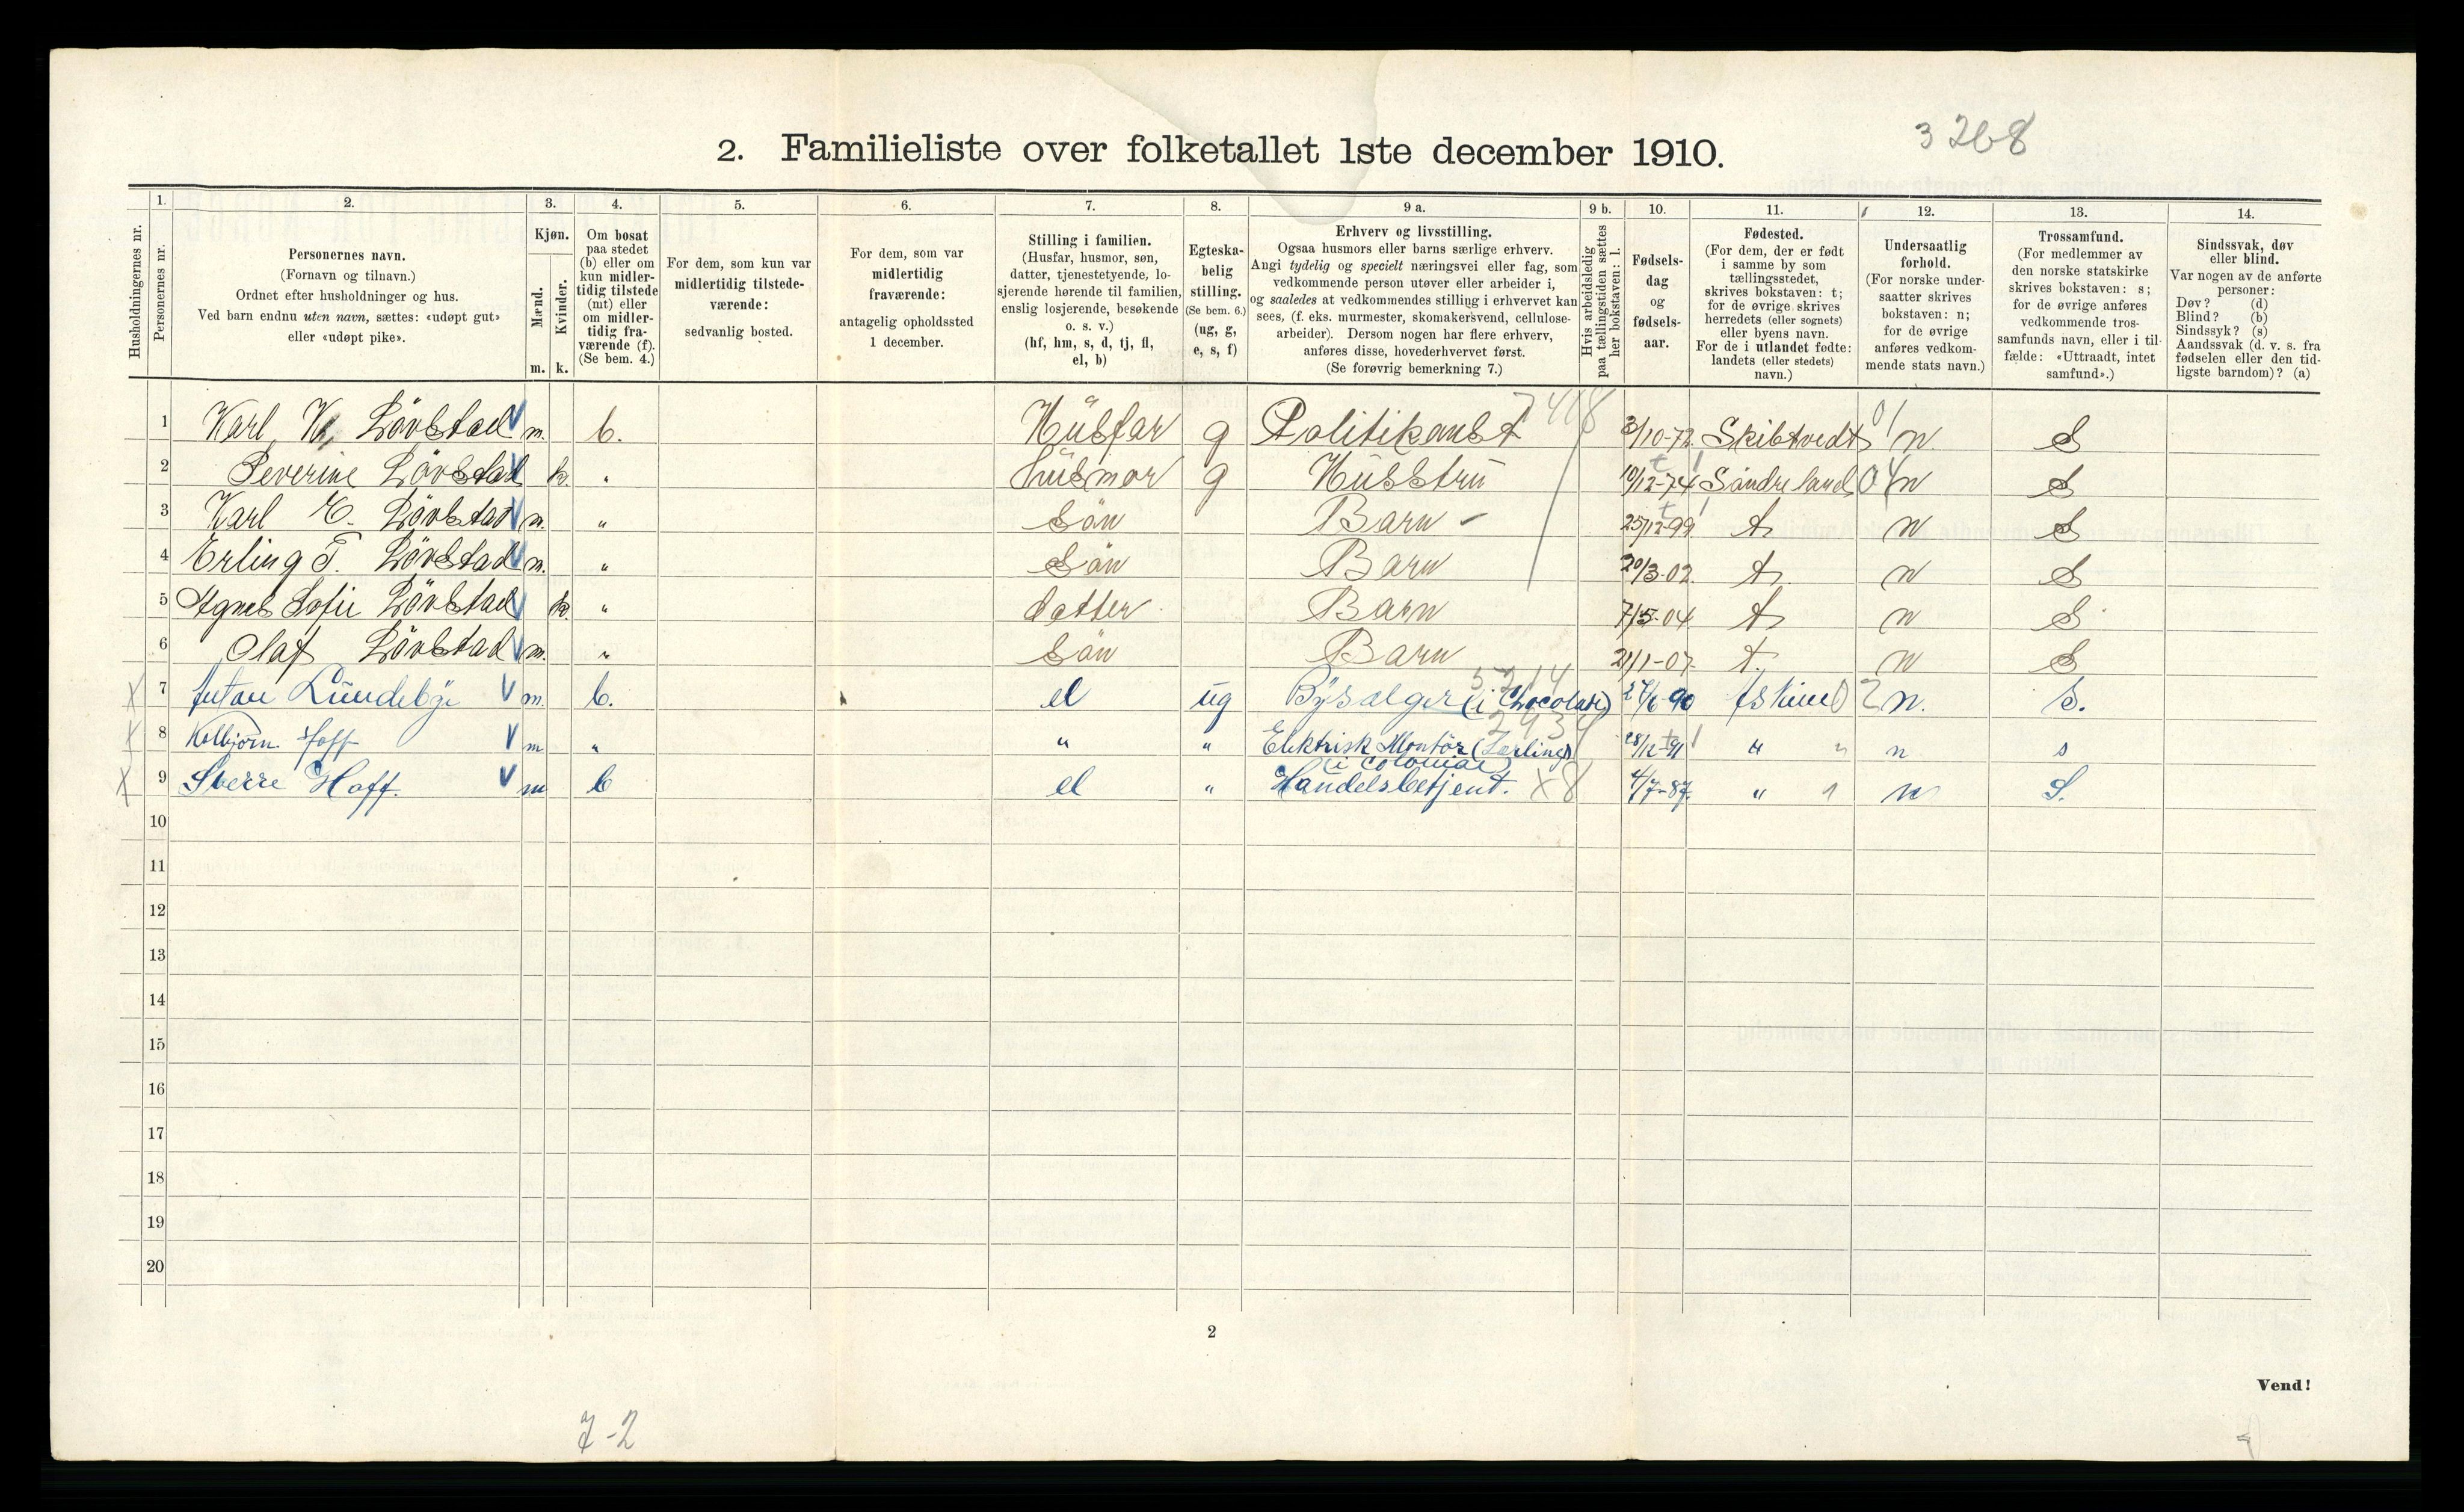 3 268
2. Familieliste over folketallet 1ste december 1910.
Husholdningernes nr.
1. Personernes nr.
2. Personernes navn. (Fornavn og tilnavn.) Ordnet efter husholdninger og hus. Ved barn endnu uten navn, sættes: «udøpt gut» eller «udøpt pike».
3. Kjøn. Mænd. m. Kvinder. k.
4. Om bosat paa stedet (b) eller om kun midlertidig tilstede (mt) eller om midlertidig fraværende (f). (Se bem. 4.)
5. For dem, som kun var midlertidig tilstedeværende: sedvanlig bosted.
6. For dem, som var midlertidig fraværende: antagelig opholdssted 1 december.
7. Stilling i familien. (Husfar, husmor, søn, datter, tjenestetyende, losjerende hørende til familien, enslig losjerende, besøkende o. s. v.) (hf, hm, s, d, tj, fl, el, b)
8. Egteskabelig stilling. (Se bem. 6.) (ug, g, e, s, f)
9 a. Erhverv og livsstilling. Ogsaa husmors eller barns særlige erhverv. Angi tydelig og specielt næringsvei eller fag, som vedkommende person utøver eller arbeider i, og saaledes at vedkommendes stilling i erhvervet kan sees, (f. eks. murmester, skomakersvend, cellulosearbeider). Dersom nogen har flere erhverv, anføres disse, hovederhvervet først. (Se forøvrig bemerkning 7.)
9 b. Hvis arbeidsledig paa tællingstiden sættes her bokstaven: l.
10. Fødselsdag og fødselsaar.
11. Fødested. (For dem, der er født i samme by som tællingsstedet, skrives bokstaven: t; for de øvrige skrives herredets (eller sognets) eller byens navn. For de i utlandet fødte: landets (eller stedets) navn.)
12. Undersaatlig forhold. (For norske undersaatter skrives bokstaven: n; for de øvrige anføres vedkommende stats navn.)
13. Trossamfund. (For medlemmer av den norske statskirke skrives bokstaven: s; for de øvrige anføres vedkommende trossamfunds navn, eller i tilfælde: «Uttraadt, intet samfund».)
14. Sindssvak, døv eller blind. Var nogen av de anførte personer: Døv? (d) Blind? (b) Sindssyk? (s) Aandssvak (d. v. s. fra fødselen eller den tidligste barndom)? (a)
1 Karl K. Lövstad m. b. Hüsfar g Politikonst 3/10-72 Skibtvedt 01 n S
2 Severine Lövstad k. " hüsmor g Hüsstrü 10/12-74 Söndre land 04 n S
3 Karl E. Lövstad m. " Sön Barn 25/12-99 t n S
4 Erling T. Lövstad m. " Sön Barn 20/3-02 t. n S
5 Agnes Sofie Lövstad k. " datter Barn 7/5-04 t n S
6 Olaf Lövstad m. " Sön Barn 21/1-07 t. n S
7 Lündebÿ m. b. el üg (i Chocolade) 27/6-90 n. S.
8 Kolbjörn. Hoff m " " " Elektrisk Montör (Lærling) 28/12-91 " n s
9 Sverre Hoff. m b el " Handelsbetjent. (i Colonial) X8 4/7-87. " 1 n S.
10
11
12
13
14
15
16
17
18
19
20
2
Vend!
7-2